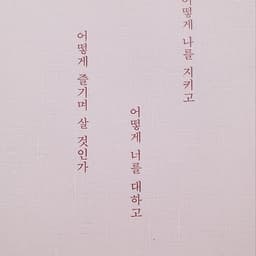 어떻게 나를 지키고
어떻게 너를 대하고
어떻게 즐기며 살 것인가